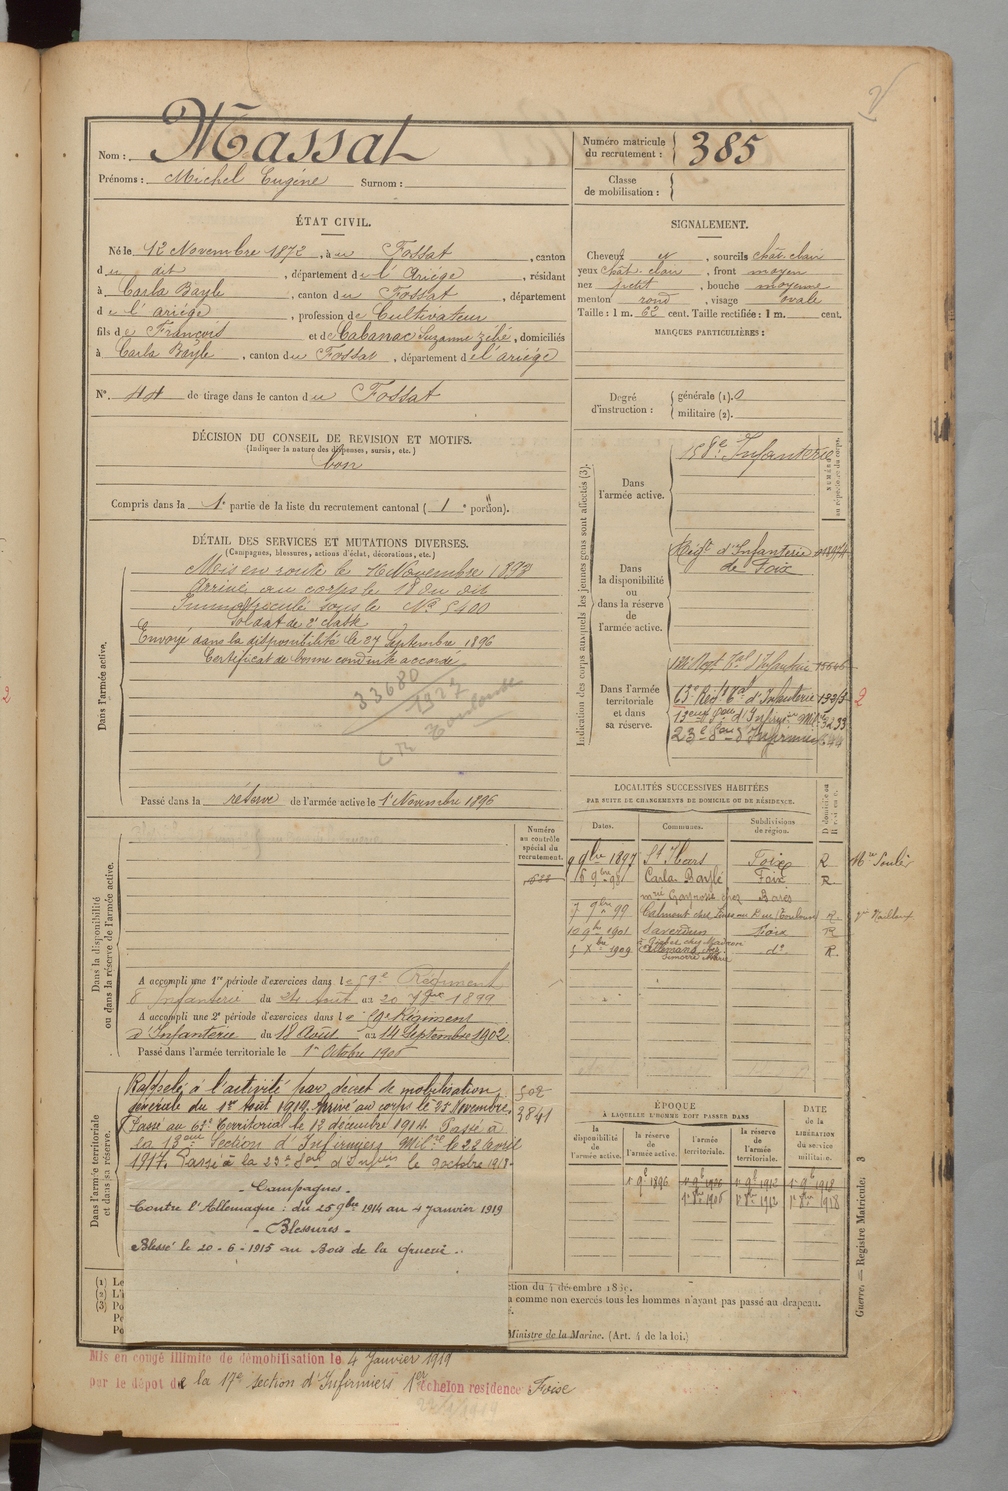 Nom : Massat
Prénoms : Michel Eugène Surnom :
Numéro matricule du recrutement : 385
Classe de mobilisation :
ÉTAT CIVIL.
Né le 12 Novembre 1872, à u Fossat, canton
d u dit, département de l'Ariège, résidant
à Carla Bayle, canton du Fossat, département
de l'ariége, profession de Cultivateur
fils de François et de Cabanac Suzanne, domiciliés
à Carla Bayle, canton du Fossat, département de l'ariége
N° 44 de tirage dans le canton du Fossat
SIGNALEMENT.
Cheveux et, sourcils chât. clair
yeux chât. clair, front moyen
nez petit, bouche moyenne
menton rond, visage ovale
Taille : 1 m. 62 cent. Taille rectifiée : 1 m. cent.
MARQUES PARTICULIÈRES :
Degré d'instruction : générale (1). 0
militaire (2).
DÉCISION DU CONSEIL DE REVISION ET MOTIFS.
(Indiquer la nature des dispenses, sursis, etc.)
bon
Compris dans la 1e partie de la liste du recrutement cantonal ( 1e portion).
DÉTAIL DES SERVICES ET MUTATIONS DIVERSES.
(Campagnes, blessures, actions d'éclat, décorations, etc.)
Dans l'armée active.
Mis en route le 16 Novembre 1893
Arrivé au corps le 18 du dit
Immatriculé sous le No 5400
Soldat de 2e classe
Envoyé dans la disponibilité le 27 Septembre 1896
Certificat de bonne conduite accordé
33680
1927
Toulouse
Passé dans la réserve de l'armée active le 1er Novembre 1896
Indication des corps auxquels les jeunes gens sont affectés (3).
Dans l'armée active.
Infanterie
Dans la disponibilité ou dans la réserve de l'armée active.
Régt d'Infanterie
de Foix
Dans l'armée territoriale et dans sa réserve.
Régt d'Infanterie
63e Régt d'Infanterie
23e
LOCALITÉS SUCCESSIVES HABITÉES
PAR SUITE DE CHANGEMENTS DE DOMICILE OU DE RÉSIDENCE.
Dates. Communes. Subdivisions de région.
9 9bre 1897 St Ybars Foix R
6 9bre 98 Carla Bayle Foix R
7 9bre 99 Calmont chez R
10 9bre 1901 Saverdun Foix R
5 Xbre 1909 do R
Dans la disponibilité ou dans la réserve de l'armée active.
Numéro au contrôle spécial du recrutement.
A accompli une 1re période d'exercices dans le 59e Régiment
d'Infanterie du 24 Août au 20 7bre 1899
A accompli une 2e période d'exercices dans le 59e Régiment
d'Infanterie du 18 Août au 14 Septembre 1902
Passé dans l'armée territoriale le 1er Octobre 1906
Dans l'armée territoriale et dans sa réserve.
502
3841
Rappelé à l'activité par décret de mobilisation
générale du 1er Août 1914. Arrivé au corps le 25 Novembre.
Passé au 63e Territorial le 12 décembre 1914. Passé à
la 13eme Section d'Infirmiers Milres le 22 avril
1917. Passé à la 23e Son d'Infiers le 9 octobre 1918.
- Campagnes -
Contre l'Allemagne : du 25 9bre 1914 au 4 Janvier 1919
- Blessures -
Blessé le 20-6-1915 au Bois de la Grurie.
ÉPOQUE
À LAQUELLE L'HOMME DOIT PASSER DANS
DATE DE LA LIBÉRATION DU SERVICE MILITAIRE.
la disponibilité de l'armée active. la réserve de l'armée active. l'armée territoriale. la réserve de l'armée territoriale.
1er 9e 1896 1er 9e 1906 1er 9e 1912 1er 9e 1918
1er 8bre 1906 1er 8bre 1912 1er 8bre 1918
a comme non exercés tous les hommes n'ayant pas passé au drapeau.
Ministre de la Marine. (Art. 4 de la loi.)
Guerre. — Registre Matricule. 3
Mis en congé illimité de démobilisation le 4 Janvier 1919
par le dépot de la 17e section d'Infirmiers 1er échelon residence Foix